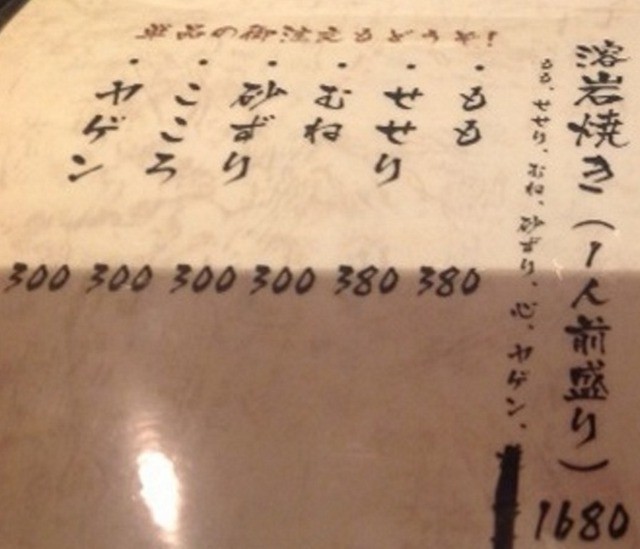 溶岩焼き(1人前盛り)
1680
もも、せせり、むね、砂ずり、心、ヤゲン、
・もも 380
・せせり 380
・むね 300
・砂ずり 300
・こころ 300
・ヤゲン 300